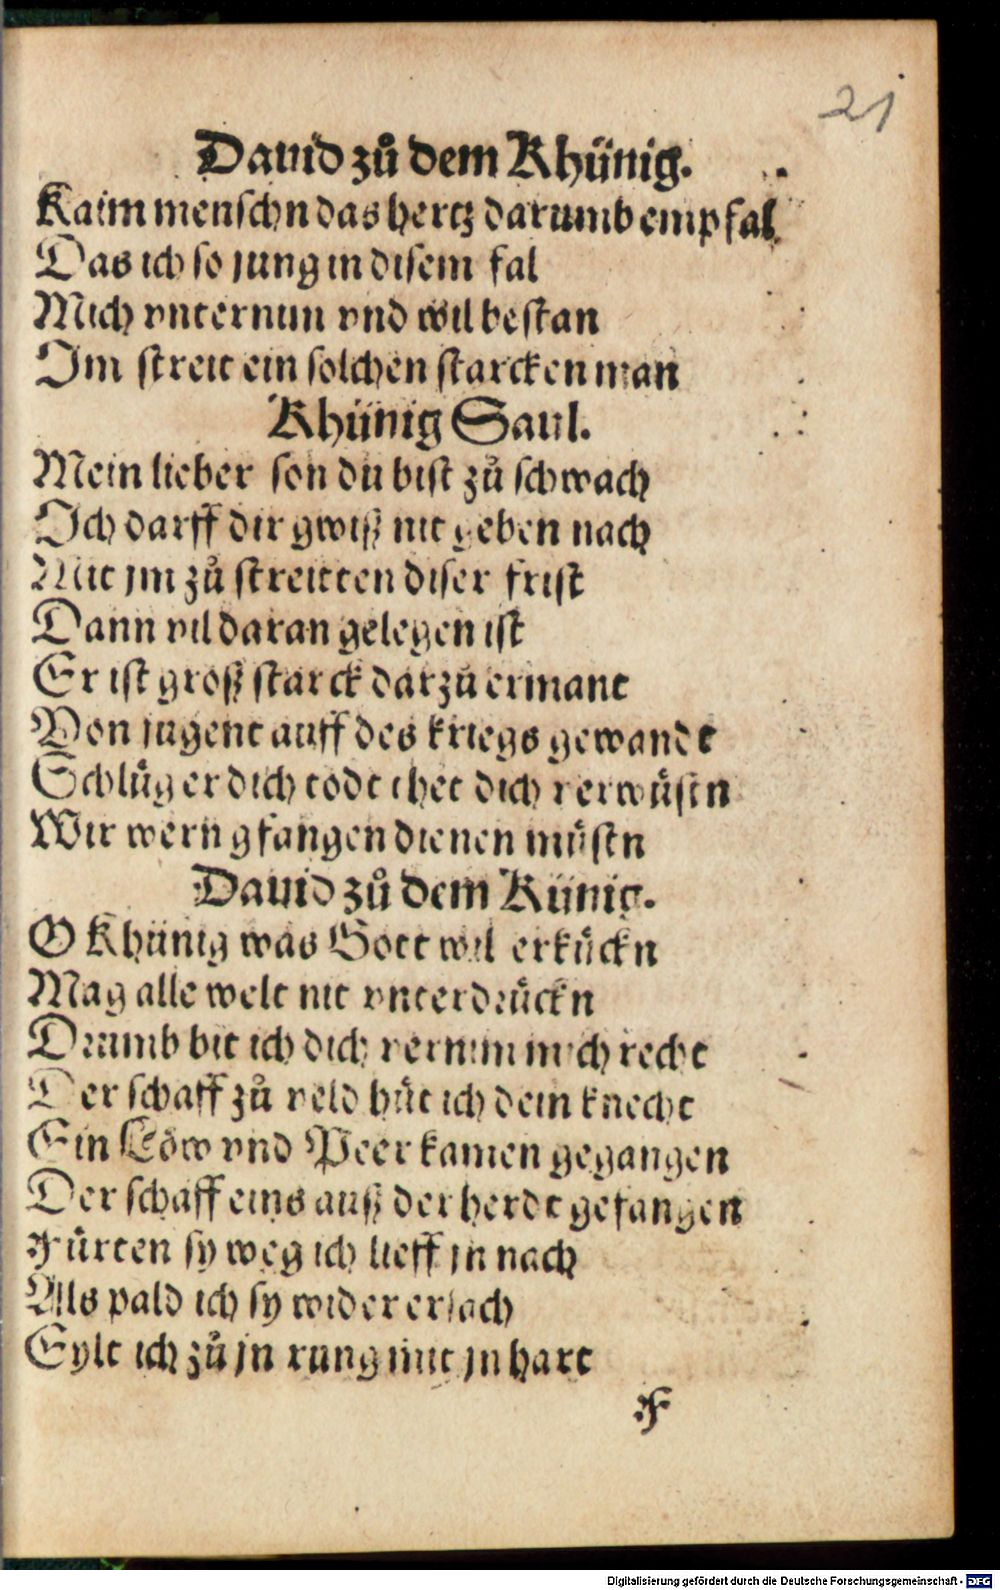 21
Dauid zů dem Khünig.
Kaim menschn das hertz darumb empfal
Das ich so jung in disem fal
Mich vnternim vnd wil bestan
Im streit ein solchen starcken man
Khünig Saul.
Mein lieber son du bist zů schwach
Ich darff dir gwiß nit geben nach
Mit jm zů streitten diser frist
Dann vil daran gelegen ist
Er ist groß starck darzů ermant
Von jugent auff des kriegs gewandt
Schlüg er dich todt thet dich verwüstn
Wir wern gfangen dienen müstn
Dauid zů dem Künig.
O Khünig was Gott wil erkückn
Mag alle welt nit vnterdrückn
Drumb bit ich dich vernim mich recht
Der schaff zů veld hüt ich dein knecht
Ein Löw vnd Peer kamen gegangen
Der schaff eins auß der herdt gefangen
Fürten sy weg ich lieff jn nach
Als pald ich sy wider ersach
Eylt ich zů jn rung mit jn hart
F
Digitalisierung gefördert durch die Deutsche Forschungsgemeinschaft - DFG